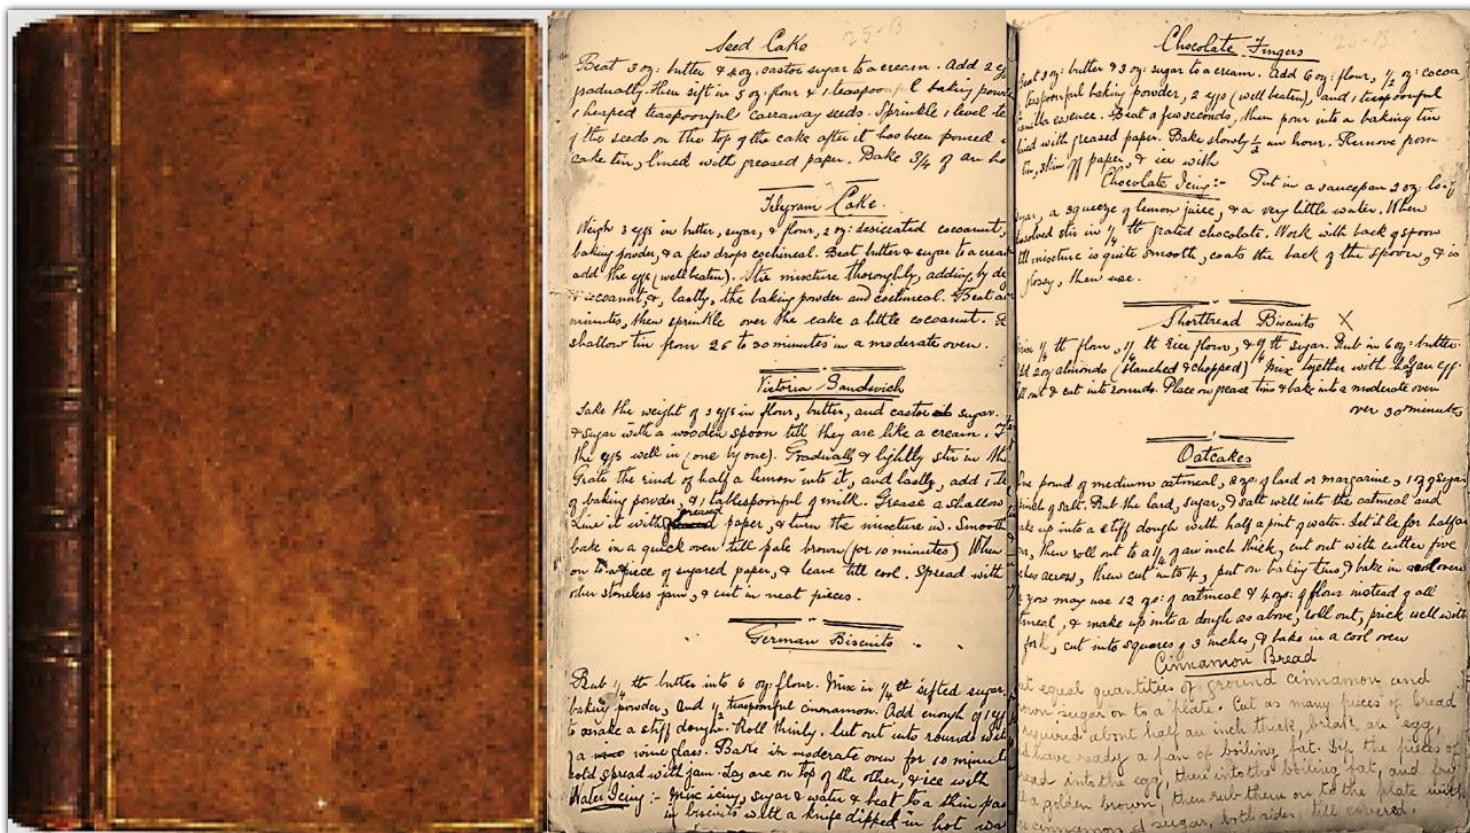 25-B
Seed Cake
Beat 3 oz: butter & 4 oz. castor sugar to a cream. Add 2
gradually. then sift in 5 oz. flour & 1 teaspoon l baking
1 heaped teaspoonful carraway seeds. Sprinkle 1 level
of the seeds on the top of the cake after it has been poured
cake tin, lined with greased paper. Bake 3/4 of an
Telegram Cake.
Weigh 3 eggs in butter, sugar, & flour, 2 oz: desiccated cocoanut,
baking powder, & a few drops cochineal. Beat butter & sugar to a
add the eggs (well beaten). Stir mixture thoroughly, adding, by
cocoanut, &, lastly, the baking powder and cochineal. Beat
minutes, then sprinkle over the cake a little cocoanut.
shallow tin from 25 to 30 minutes in a moderate oven.
Victoria Sandwich
Take the weight of 3 eggs in flour, butter, and castor sugar.
& sugar with a wooden spoon till they are like a cream.
the eggs well in (one by one). Gradually & lightly stir in
Grate the rind of half a lemon into it, and lastly, add 1
of baking powder, & 1 tablespoonful of milk. Grease a shallow
Line it with greased paper, & turn the mixture in. Smooth
bake in a quick oven till pale brown (for 10 minutes) When
on to a piece of sugared paper, & leave till cool. Spread with
other stoneless jam, & cut in neat pieces.
German Biscuits
Rub 1/4 lb butter into 6 oz: flour. Mix in 1/4 lb sifted sugar,
baking powder, and 1/2 teaspoonful cinnamon. Add enough of 1 egg
to make a stiff dough. Roll thinly. Cut out into rounds
a wine glass. Bake in moderate oven for 10
cold spread with jam. Lay one on top of the other, & ice with
Water Icing :- Mix icing sugar & water & beat to a thin
in biscuits with a knife dipped in hot
26-B
Chocolate Fingers
3 oz: butter & 3 oz: sugar to a cream. Add 6 oz: flour, 1/2 oz: cocoa
teaspoonful baking powder, 2 eggs (well beaten), and 1 teaspoonful
essence. Beat a few seconds, then pour into a baking tin
lined with greased paper. Bake slowly 1/2 an hour. Remove from
tin, skin off paper, & ice with
Chocolate Icing :- Put in a saucepan 3 oz: loaf
sugar, a squeeze of lemon juice, & a very little water. When
dissolved stir in 1/4 lb grated chocolate. Work with back of spoon
till mixture is quite smooth, coats the back of the spoon, & is
glossy, then use.
Shortbread Biscuits X
1/4 lb flour, 1/4 lb rice flour, & 1/4 lb sugar. Rub in 6 oz: butter.
2 oz: almonds (blanched & chopped) Mix together with half an egg.
out & cut into rounds. Place on grease tins & bake into a moderate oven
over 30 minutes
Oatcakes
One pound of medium oatmeal, 2 ozs. of lard or margarine, 1 oz of sugar
pinch of salt. Rub the lard, sugar, & salt well into the oatmeal and
up into a stiff dough with half a pint of water. Let it lie for half an
then roll out to a 1/4 of an inch thick, cut out with cutter five
across, then cut into 4, put on baking tins, & bake in a cool oven
you may use 12 ozs: of oatmeal & 4 ozs: of flour instead of all
oatmeal, & make up into a dough as above, roll out, prick well with
fork, cut into squares of 3 inches, & bake in a cool oven
Cinnamon Bread
equal quantities of ground cinnamon and
brown sugar on to a plate. Cut as many pieces of bread
required about half an inch thick, break an egg,
have ready a pan of boiling fat. Dip the pieces of
bread into the egg, then into the boiling fat, and fry
a golden brown, then rub them on to the plate with
cinnamon & sugar, both sides, till covered.